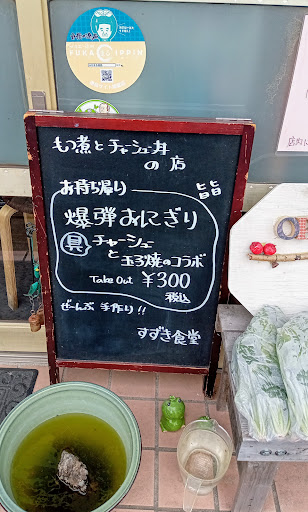 もつ煮とチャーシュー丼
の店
お持ち帰り 旨旨
爆弾おにぎり
具 チャーシュー
と玉子焼のコラボ
Take Out ¥300
税込
ぜーんぶ 手作り!!
すずき食堂